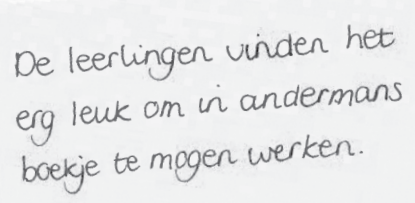 De leerlingen vinden het
erg leuk om in andermans
boekje te mogen werken.